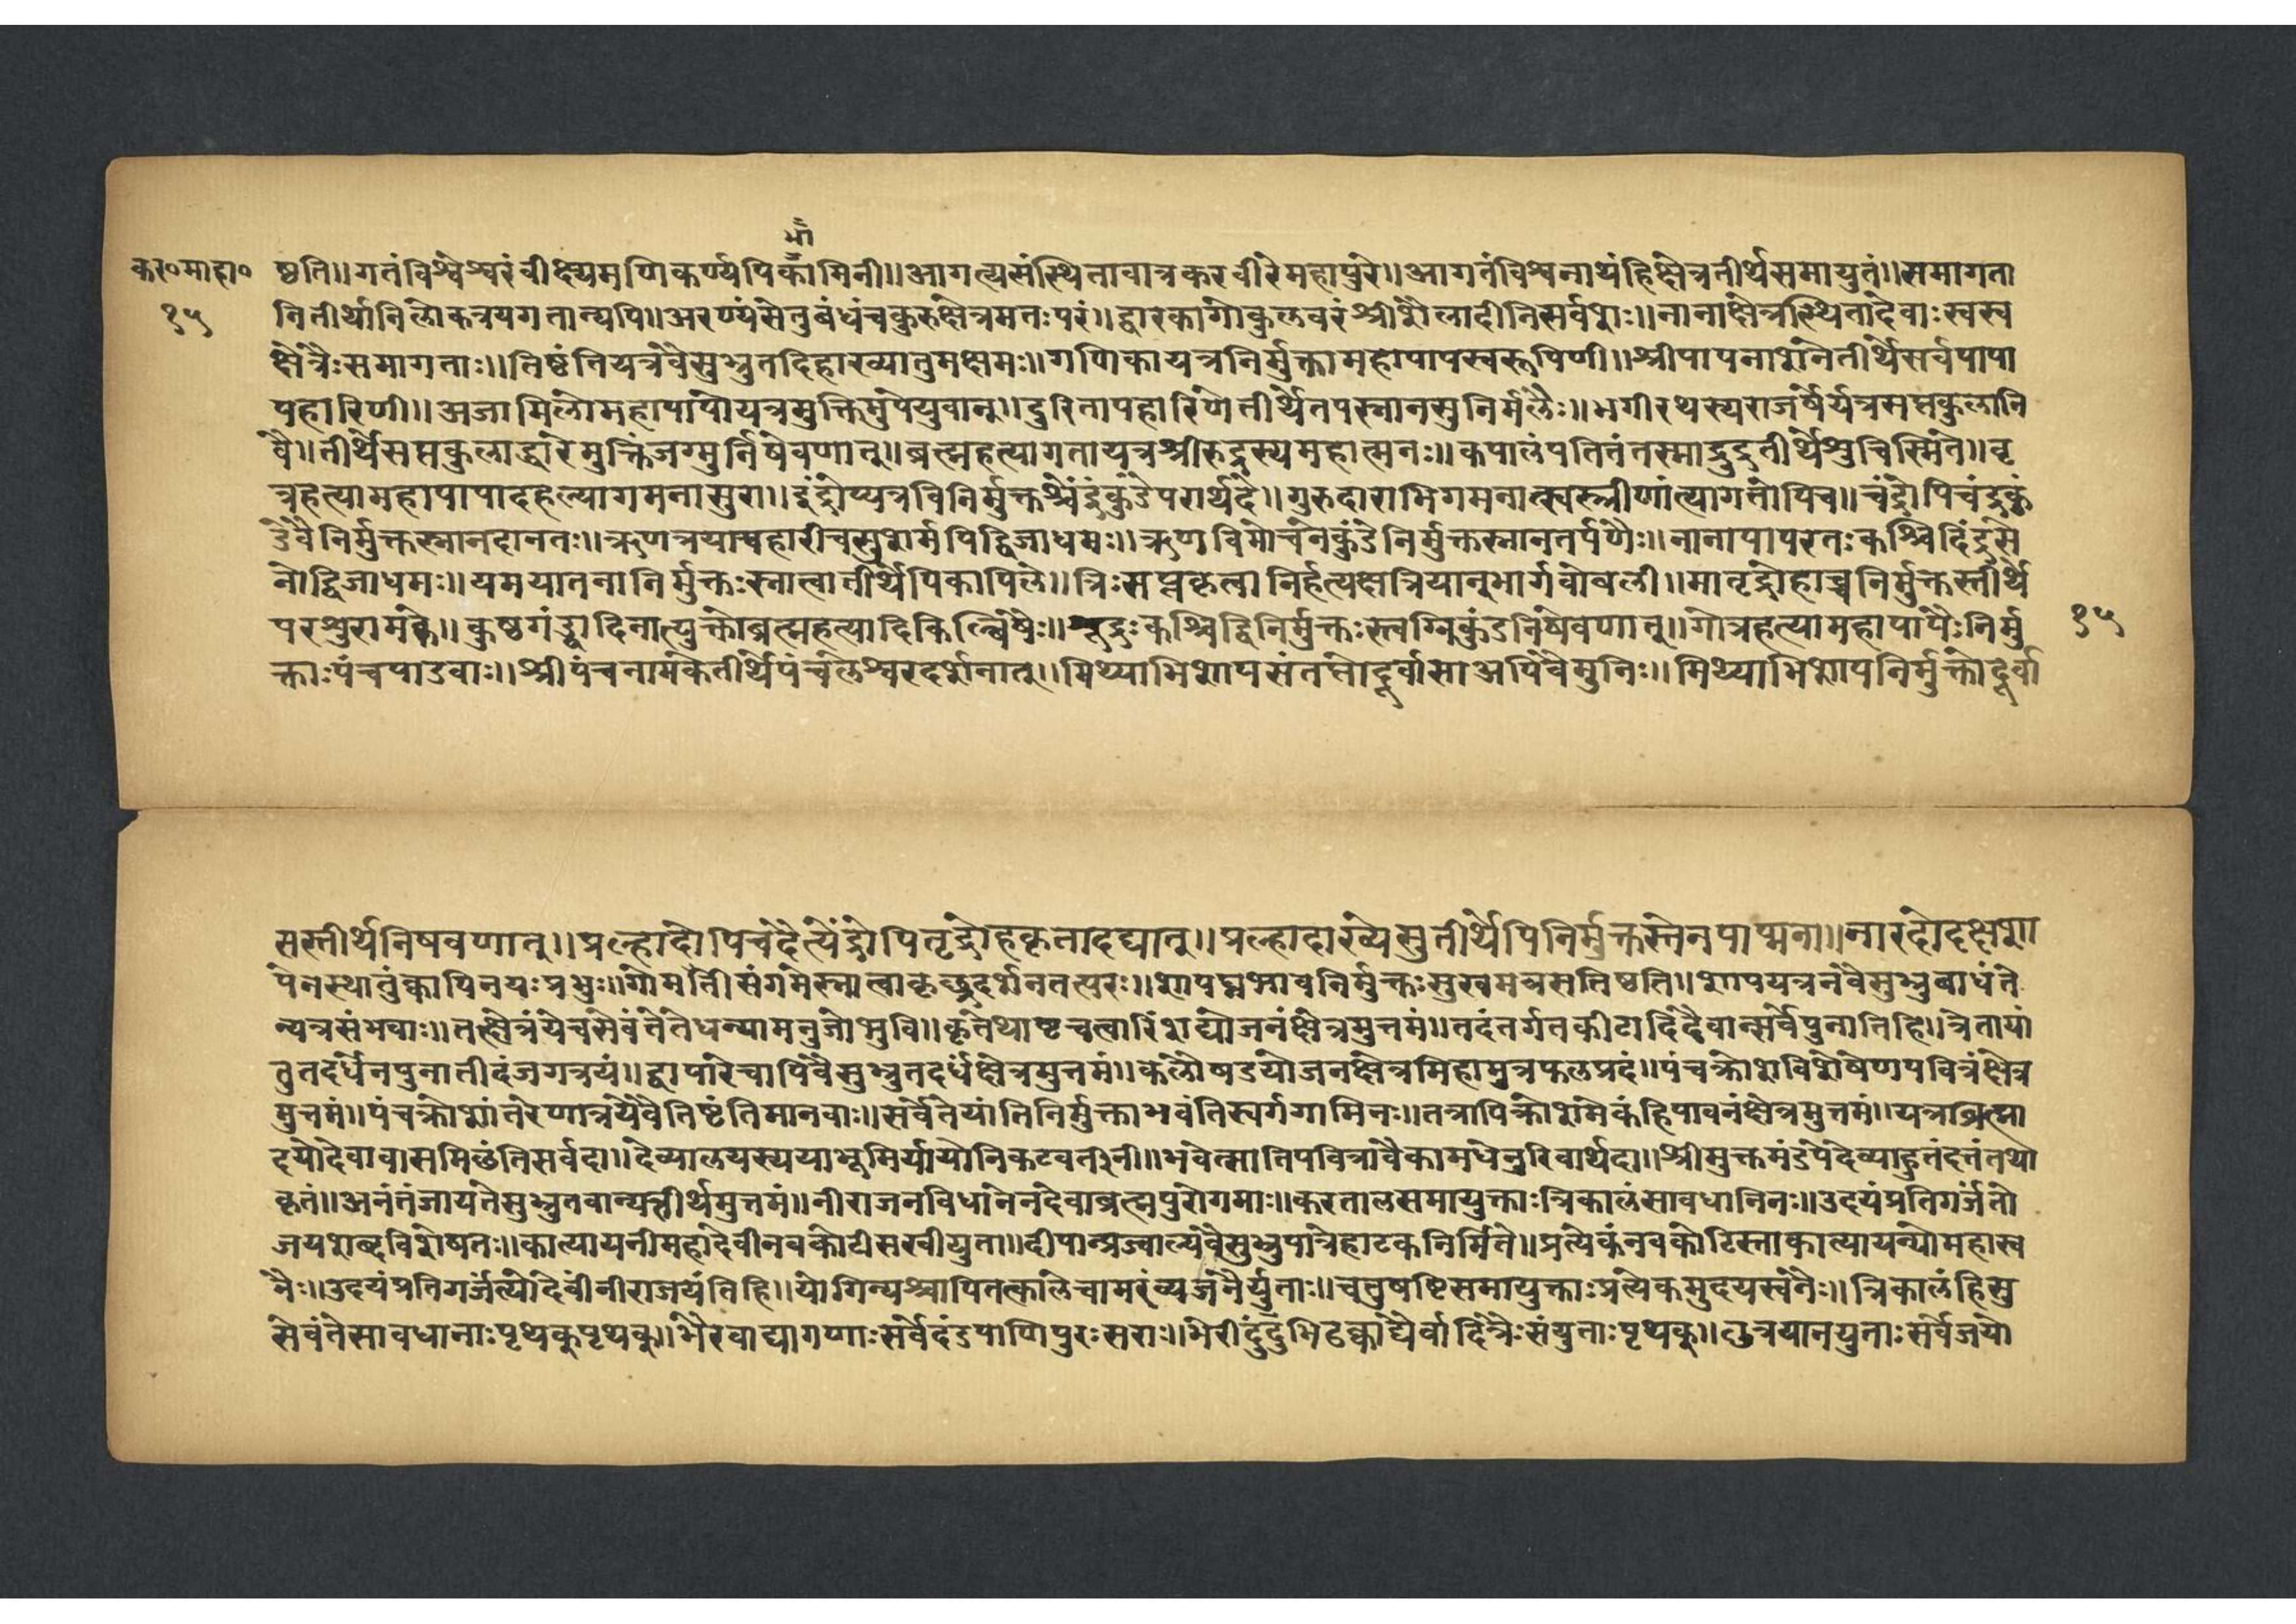 भा
कर॰माहा॰ ष्ठति॥गतंविश्वेश्वरंवीक्ष्यमणिकर्ण्यपिकामिनी॥आगत्यसंस्थितावात्रकरवीरेमहापुरे॥आगतंविश्वनाथंहिक्षेत्रतीर्थसमायुतं॥समागता
१५ नितीर्थानिलोकत्रयगतान्यपि॥अरण्यंसेतुबंधंचकुरुक्षेत्रमतःपरं॥द्वारकागोकुलवरंश्रीशैलादीनिसर्वशः॥नानाक्षेत्रस्थितादेवाःस्वस्व
क्षेत्रैःसमागताः॥तिष्ठंतियत्रवैसुभ्रुतदिहाख्यातुमक्षमः॥गणिकायत्रनिर्मुक्तामहापापस्वरूपिणी॥श्रीपापनाशनेतीर्थेसर्वपापा
पहारिणी॥अजामिलोमहापापोयत्रमुक्तिमुपेयुवान्॥दुरितापहारिणेतीर्थेतपस्नानसुनिर्मलैः॥भगीरथस्यराजर्षेर्यत्रसप्तकुलानि
वै॥तीर्थेसप्तकुलाद्धारेमुक्तिंजग्मुर्निषेवणात्॥ब्रह्महत्यागतायत्रश्रीरुद्रस्यमहात्मनः॥कपालंपतितंतस्माद्रुद्रतीर्थेशुचिस्मिते॥वृ
त्रहत्यामहापापादहल्यागमनासुरा॥इंद्रोप्यत्रविनिर्मुक्तश्चेंद्रकुंडेपरार्थदे॥गुरुदाराभिगमनात्स्वस्त्रीणांत्यागतोपिच॥चंद्रोपिचंद्रकुं
डेवैनिर्मुक्तस्नानदानतः॥ऋणत्रयापहारीचसुशर्मपिद्विजाधमः॥ऋणविमोचनेकुंडेनिर्मुक्तस्नानतर्पणैः॥नानापापरतःकश्चिदिंद्रसे
नोद्विजाधमः॥यमयातनानिर्मुक्तःस्नात्वातीर्थेपिकापिले॥त्रिःसप्तकृत्वानिर्हत्यक्षत्रियान्भार्गवोबली॥मातृद्रोहाच्चनिर्मुक्तस्तीर्थे
परशुरामके॥कुष्ठगंड्वादिनात्युक्तोब्रह्महत्यादिकिल्बिषैः॥शूद्रःकश्चिद्विनिर्मुक्तःस्त्वग्निकुंडनिषेवणात्॥गोत्रहत्यामहापापैःनिर्मु १५
क्ताःपंचपांडवाः॥श्रीपंचनामकेतीर्थेपंचलेश्वरदर्शनात्॥मिथ्याभिशापसंतप्तोदूर्वासाअपिवैमुनिः॥मिथ्याभिशापनिर्मुक्तोदूर्वा
सस्तीर्थनिषवणात्॥प्रल्हादोपिचदैत्येंद्रोपितृद्रोहकृतादघात्॥प्रल्हादाख्येसुतीर्थेपिनिर्मुक्तस्तेनपाप्मना॥नारदोदक्षशा
पेनस्थातुंक्वापिनयःप्रभुः॥गोमतीसंगमेस्नात्वाकृछ्रदर्शनतत्परः॥शापघ्नभावनिर्मुक्तःसुखमत्रसतिष्ठति॥शापयत्रनवैसुभ्रुबाधंते
न्यत्रसंभवाः॥तत्क्षेत्रंयेचसेवंतेतेधन्यामनुजोभुवि॥कृतेथाष्टचत्वारिंशद्योजनंक्षेत्रमुत्तमं॥तदंतर्गतकीटादिदेवान्सर्वेपुनातिहि॥त्रेतायां
तुतदर्धेनपुनातीदंजगत्त्रयं॥द्वापारेचापिवैसुभ्रुतदर्धंक्षेत्रमुत्तमं॥कलौषडयोजनक्षेत्रमिहामुत्रफलप्रदं॥पंचक्रोशविशेषेणपवित्रंक्षेत्र
मुत्तमं॥पंचक्रोशांतरेणात्रयेवैतिष्टंतिमानवाः॥सर्वेतेयांतिनिर्मुक्ताभवंतिस्वर्गगामिनः॥तत्रापिक्रोशमेकंहिपावनंक्षेत्रमुत्तमं॥यत्राब्रह्मा
दयोदेवावासमिछंतिसर्वदा॥देव्यालयस्ययाभूमिर्यायोनिकटवर्तिनी॥भवेत्सातिपवित्रावैकामधेनुरिवार्थदा॥श्रीमुक्तमंडपेदेव्याहुतंदत्तंतथो
कृतं॥अनंतंजायतेसुभ्रुतवान्यत्तीर्थमुत्तमं॥नीराजनविधानेनदेवाब्रह्मपुरोगमाः॥करतालसमायुक्ताःत्रिकालंसावधानिनः॥उदयंप्रतिगर्जंतो
जयशब्दविशेषतः॥कात्यायनीमहादेवीनवकोटीसखीयुता॥दीपान्प्रज्वाल्यवैसुभ्रुपात्रेहाटकनिर्मिते॥प्रत्येकंनवकोटिस्ताकात्यायन्योमहास्व
नैः॥उदयंप्रतिगर्जंत्योदेवींनीराजयंतिहि॥योगिन्यश्चापितत्कालेचामरंव्यजनैर्युताः॥चतुषष्टिसमायुक्ताःप्रत्येकमुदयस्वनैः॥त्रिकालंहिसु
सेवंतेसावधानाःपृथक्पृथक्॥भैरवाद्यागणाःसर्वेदंडपाणिपुरःसराः॥भेरीदुंदुभिढक्काद्यैर्वादित्रैःसंयुताःपृथक्॥छत्रयानयुताःसर्वेजयो